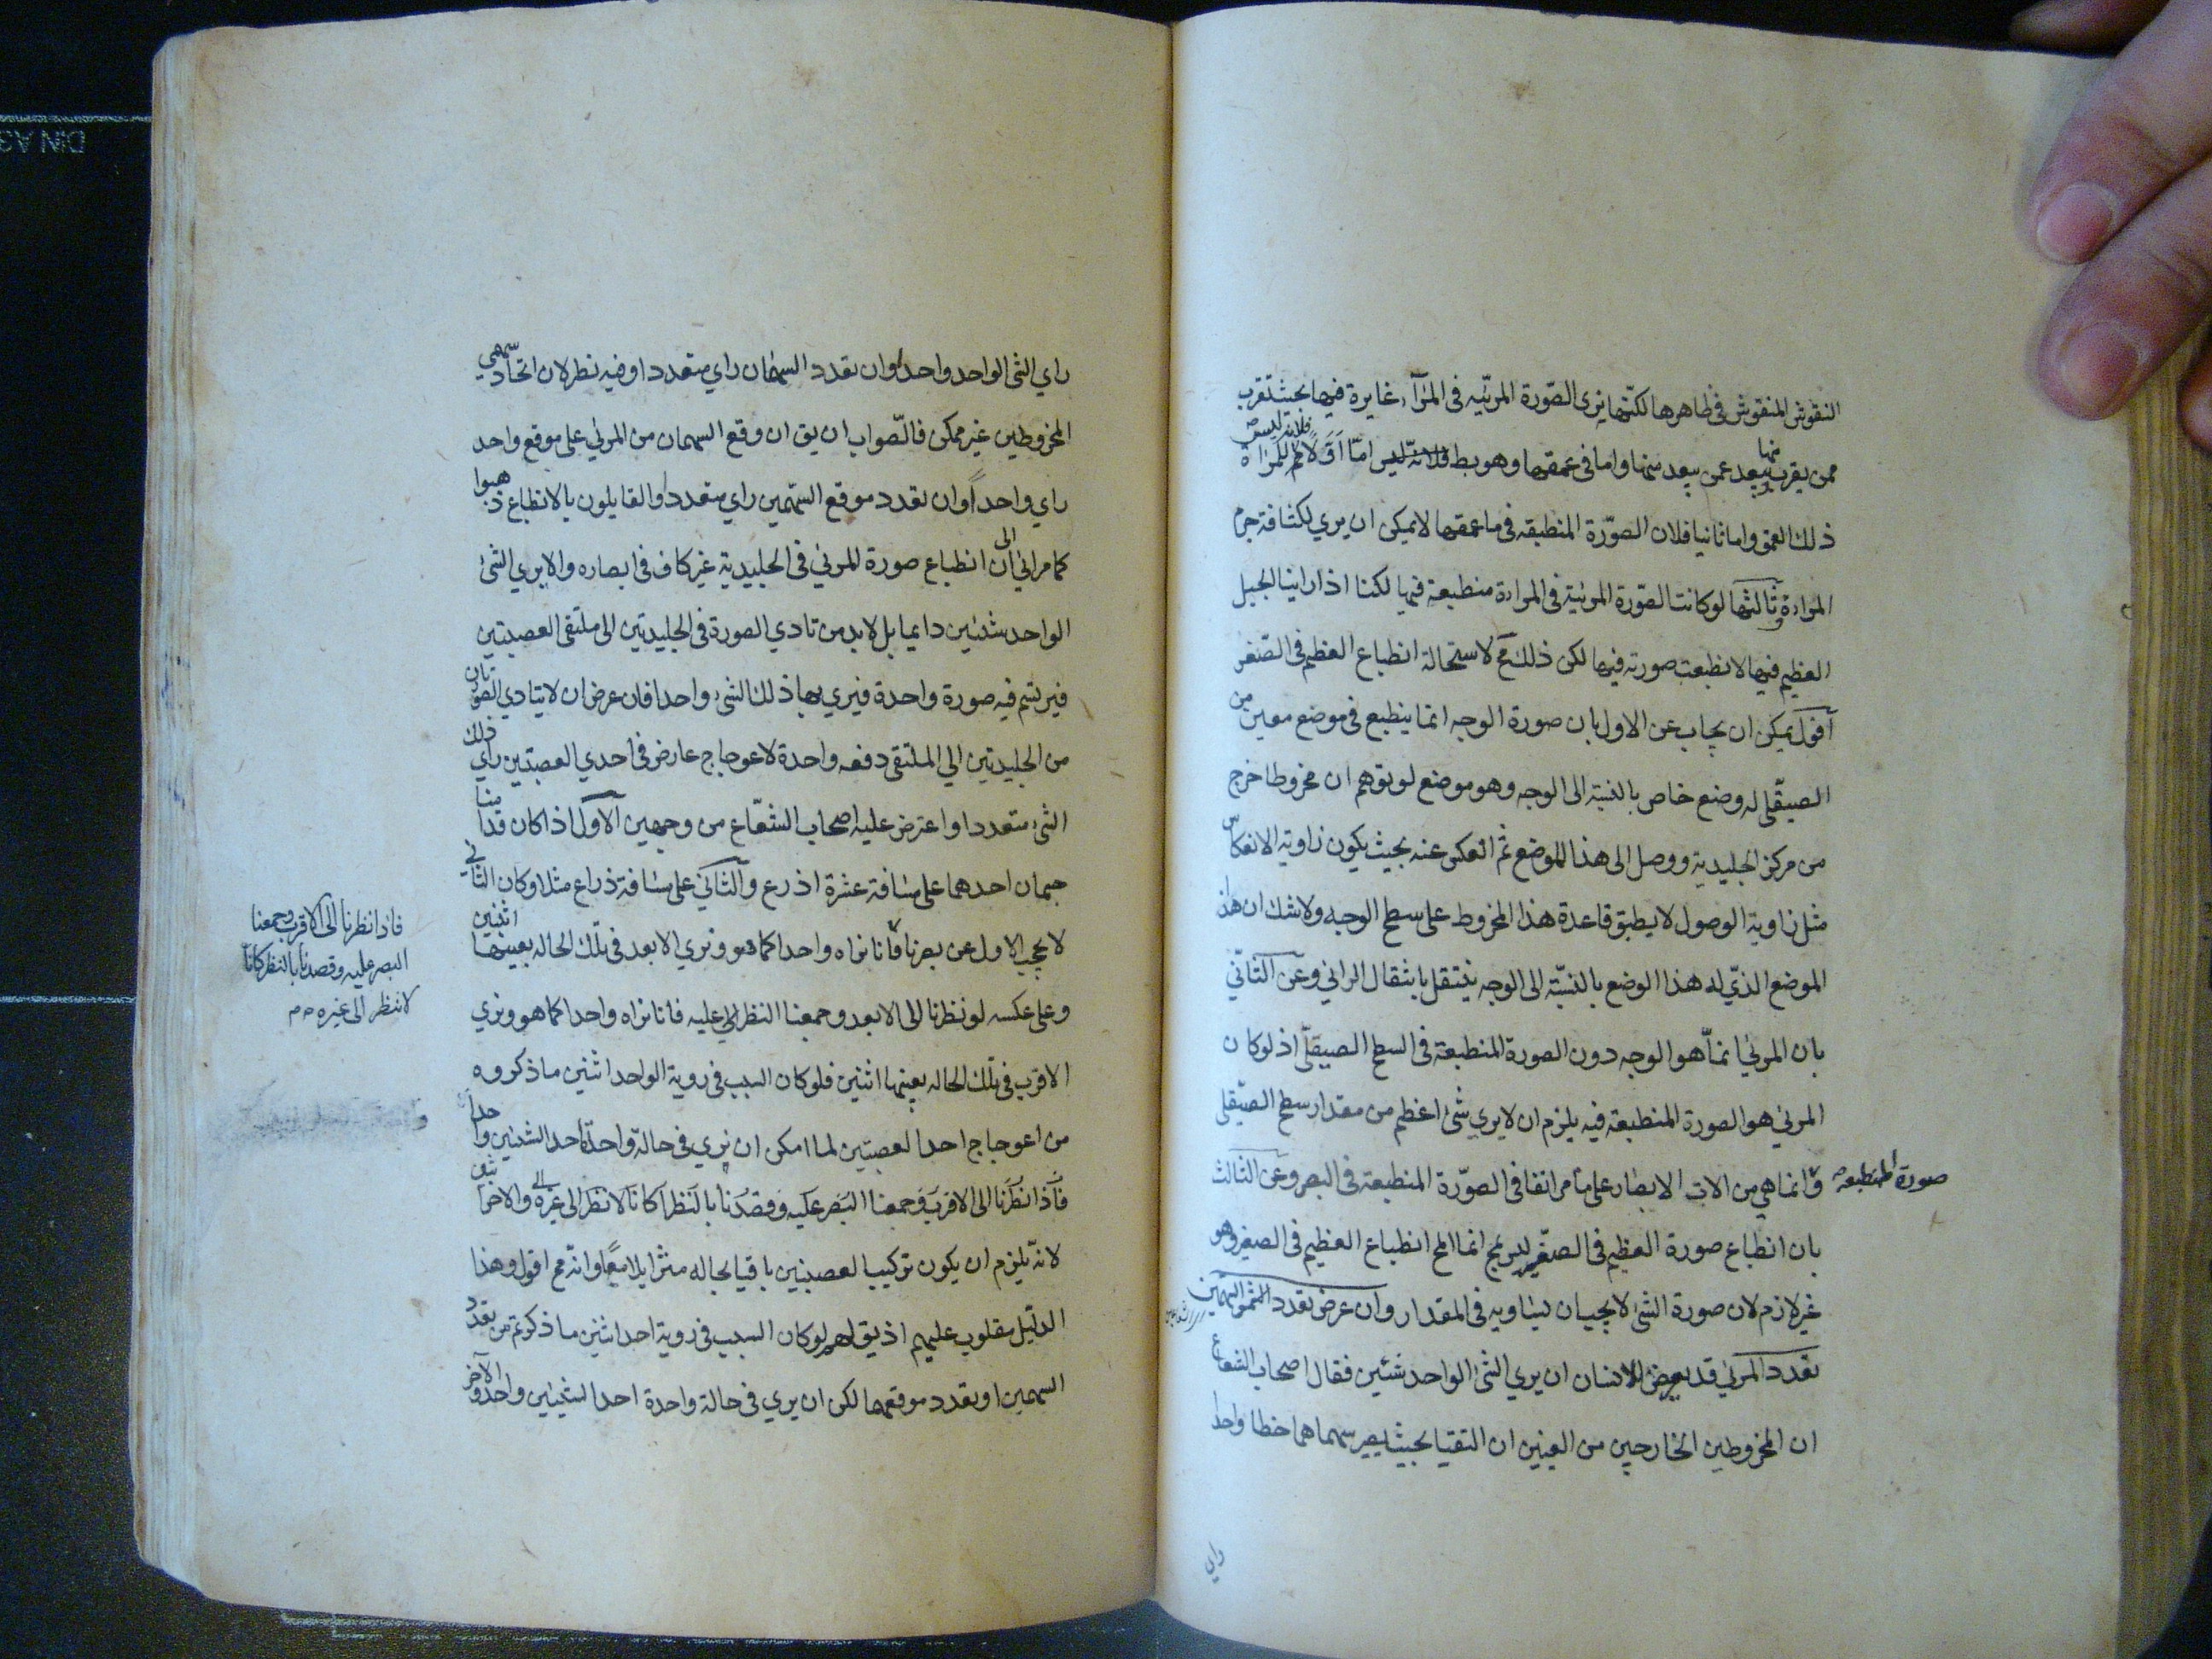 النقوش المنقوش في ظاهرها لكنها نرى الصورة المرئيه في المرآة غايرة فيها بحيث تقرب
ممن يقرب منها وتبعد عمن يبعد منها واما في عمقها وهو بط فلانه ليس اما اولا فلانه ليس للمراة
ذلك العمق واما ثانيا فلان الصورة المنطبقه في ما عمقها لا يمكن ان يري لكثافة جرم
المراءة وثالثها لو كانت الصورة المرئية في المراءة منطبعة فيها لكنا اذا راينا الجبل
العظيم فيها لانطبعت صورته فيها لكن ذلك مح لاستحالة انطباع العظيم في الصغير
اقول يمكن ان يجاب عن الاول بان صورة الوجه انما ينطبع في موضع معين من
الصيقلي له وضع خاص بالنسبة الى الوجه وهو موضع لو توهم ان مخروطا خرج
من مركز الجليدية ووصل الى هذا الموضع ثم انعكس عنه بحيث يكون زاوية الانعكاس
مثل زاوية الوصول لا يطبق قاعدة هذا المخروط على سطح الوجه ولا شك ان هذا
الموضع الذي له هذا الوضع بالنسبة الى الوجه ينتقل بانتقال الرائي وعن الثاني
بان المرئي انما هو الوجه دون الصورة المنطبعة في السطح الصيقلي اذ لو كان
المرئي هو الصورة المنطبعة فيه يلزم ان لا يري شئ اعظم من مقدار سطح الصيقلي
وانما هي من الات الابصار على ما مر اتفا في الصورة المنطبعة في البصر وعن الثالث
صورة المنطبعة
بان انطباع صورة العظيم في الصغير ليس بمح انما المح انطباع العظيم في الصغير وهو
غير لازم لان صورة الشئ لا يجب ان يساويه في المقدار وان عرض تعدد السهمين
تعدد المرئي قد يعرض للانسان ان يري الشئ الواحد شئين فقال اصحاب الشعاع
ان المخروطين الخارجين من العينين ان التقيا بحيث يصير سهماهما خطا واحدا
راي
راي الشئ الواحد واحدا وان تعدد السهمان راي متعددا وفيه نظر لان اتحاد سهمي
المخروطين غير ممكن فالصواب ان يق ان وقع السهمان من المرئي على موقع واحد
راي واحدا وان تعدد موقع السهمين راي متعددا والقايلون بالانطباع ذهبوا
كما مر الى ان انطباع صورة المرئي في الجليدية غير كاف في ابصاره والا يري الشئ
الواحد شئين دايما بل لابد من تادي الصورة في الجليديتين الى ملتقى العصبتين
فيرتسم فيه صورة واحدة فيري بها ذلك الشئ واحدا فان عرض ان لا يتادي الصورتان
من الجليديتين الى الملتقى دفعه واحدة لاعوجاج عارض في احدي العصبتين راي ذلك
الشئ متعددا واعترض عليه اصحاب الشعاع من وجهين الاول اذا كان قدامنا
جسمان احدهما على مسافة عشرة اذرع والثاني على مسافة ذراع مثلا وكان الثاني
لا يحجب الاول عن بصرنا فانا نراه واحدا كما هو ونري الابعد في تلك الحاله بعينها اثنين
وعلى عكسه لو نظرنا الى الابعد وجمعنا النظر عليه فانا نراه واحدا كما هو ونري
الاقرب في تلك الحاله بعينها اثنين فلو كان السبب في روية الواحد اثنين ما ذكروه
من اعوجاج احد العصبتين لما امكن ان نري في حالة واحدة احد الشئين واحدا
فاذا نظرنا الى الاقرب وجمعنا البصر عليه وقصدنا بالنظر كانا لا ننظر الى غيره والاخر
لانه يلزم ان يكون تركيب العصبتين باقيا بحاله متزايلا معا وانه مح اقول وهذا
الدليل مقلوب عليهم اذ يق لهم لو كان السبب في روية احد اثنين ما ذكرتم من تعدد
السهمين او تعدد موقعهما لكن ان يري في حالة واحدة احد الشيئين واحدا والآخر
فاذا نظرنا الى الاقرب وجمعنا
البصر عليه وقصدنا بالنظر كانا
لا ننظر الى غيره